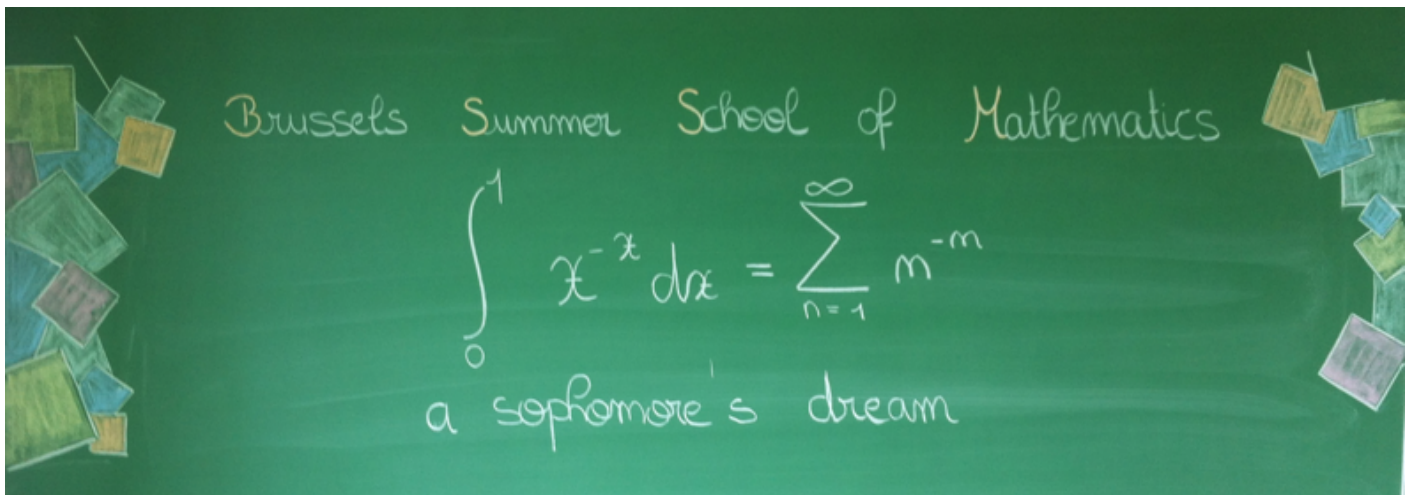 Brussels Summer School of Mathematics
∫₀¹ x⁻ˣ dx = ∑ₙ₌₁^∞ n⁻ⁿ
a sophomore's dream